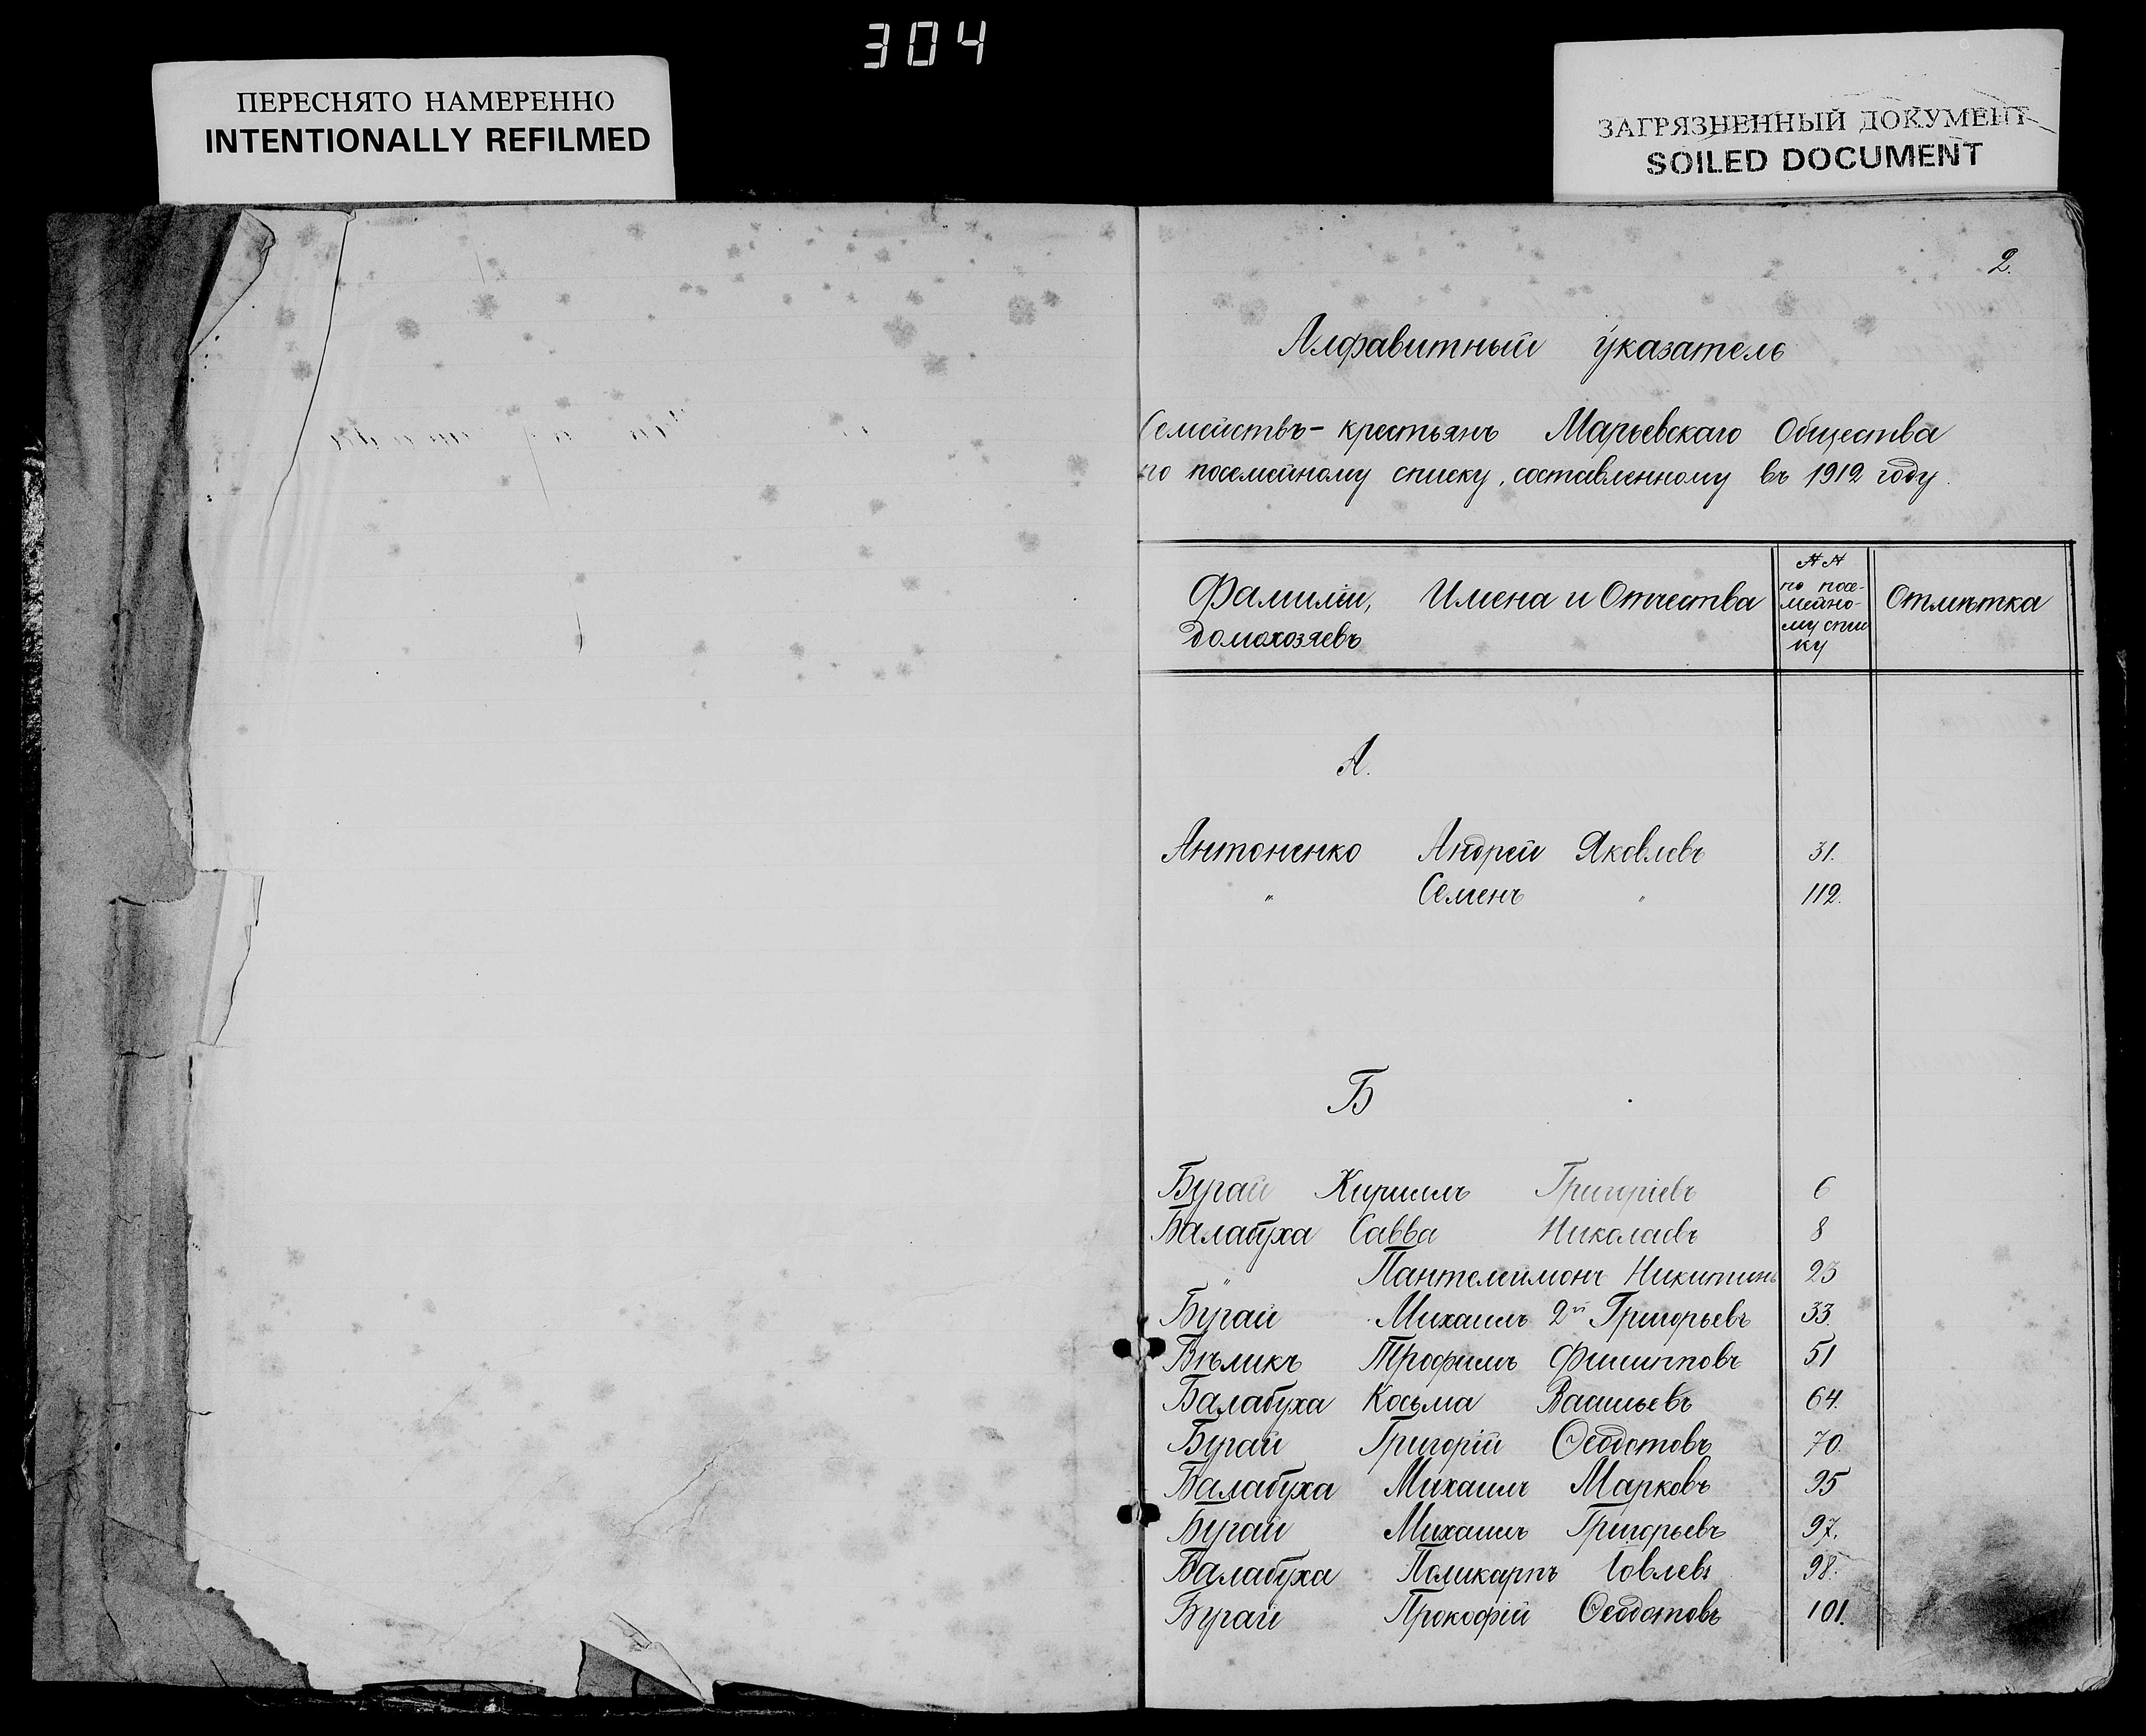 304
ПЕРЕСНЯТО НАМЕРЕННО
INTENTIONALLY REFILMED
ЗАГРЯЗНЕННЫЙ ДОКУМЕНТ
SOILED DOCUMENT
2.
Алфавитный указатель
Семействъ - крестьянъ Марьевскаго Общества
по посемейному списку, составленному въ 1912 году.
Фамиліи, Имена и Отчества
домохозяевъ
№№
по посе-
мейно-
му спис
ку
Отмѣтка
А.
Антоненко Андрей Яковлевъ 31.
" Семенъ " 112.
Б
Бугай Кириллъ Григоріевъ 6
Балабуха Савва Николаевъ 8
" Пантелеимонъ Никитинъ 23
Бугай Михаилъ 2й Григорьевъ 33.
Бѣликъ Трофимъ Филипповъ 51
Балабуха Косьма Васильевъ 64.
Бугай Григорій Ѳеодотовъ 70.
Балабуха Михаилъ Марковъ 95
Бугай Михаилъ Григорьевъ 97.
Балабуха Поликарпъ Іовлевъ 98.
Бугай Прокофій Ѳеодотовъ 101.